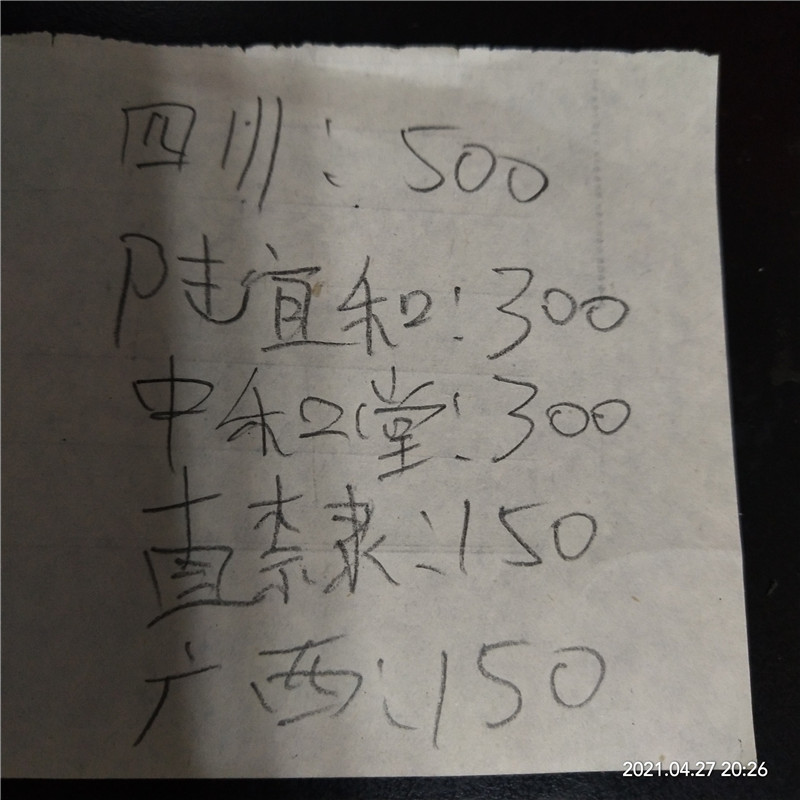 四川：500
陆宜和：300
中和堂：300
直隶：150
广西：150
2021.04.27 20:26